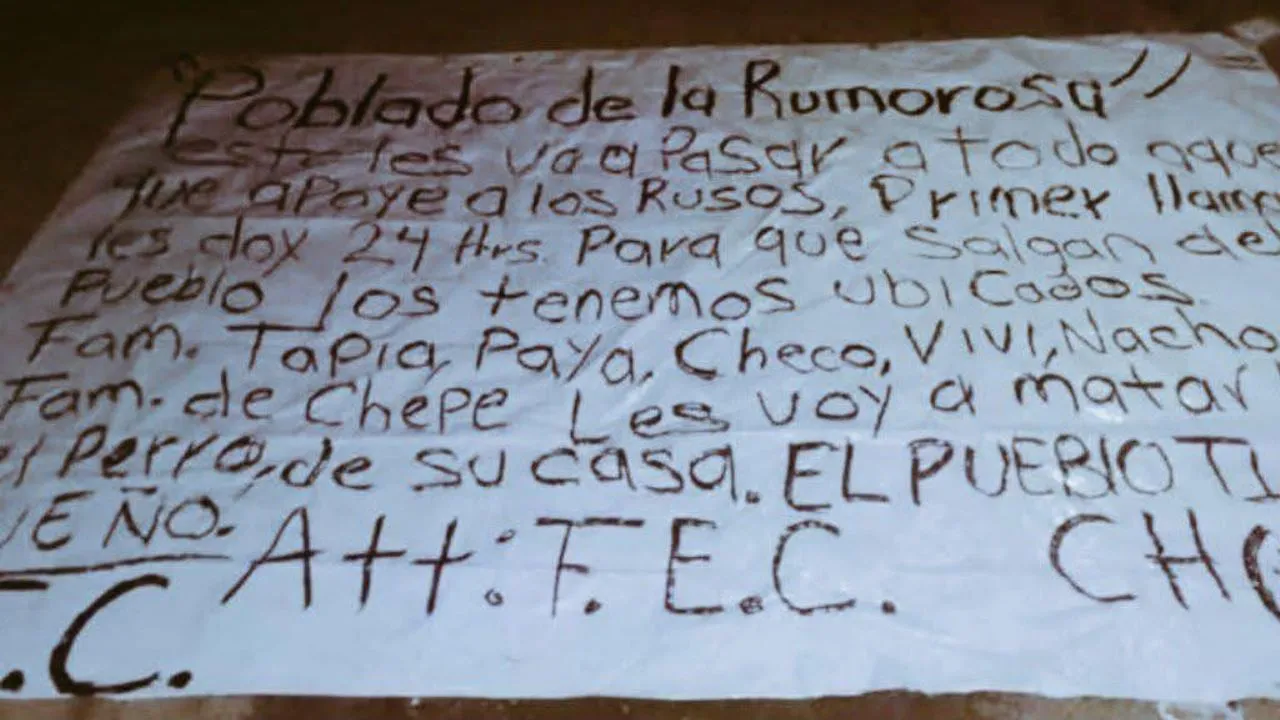 "Poblado de la Rumorosa"
esto les va a Pasar a todo aque
que apoye a los Rusos, Primer llama
les doy 24 Hrs. Para que Salgan del
Pueblo los tenemos ubicados.
Fam. Tapia, Paya, Checo, Vivi, Nacho,
Fam. de Chepe Les voy a matar
el Perro, de su casa. EL PUEBlO TI
UEÑO.
Att: F.E.C. CHG
.C.